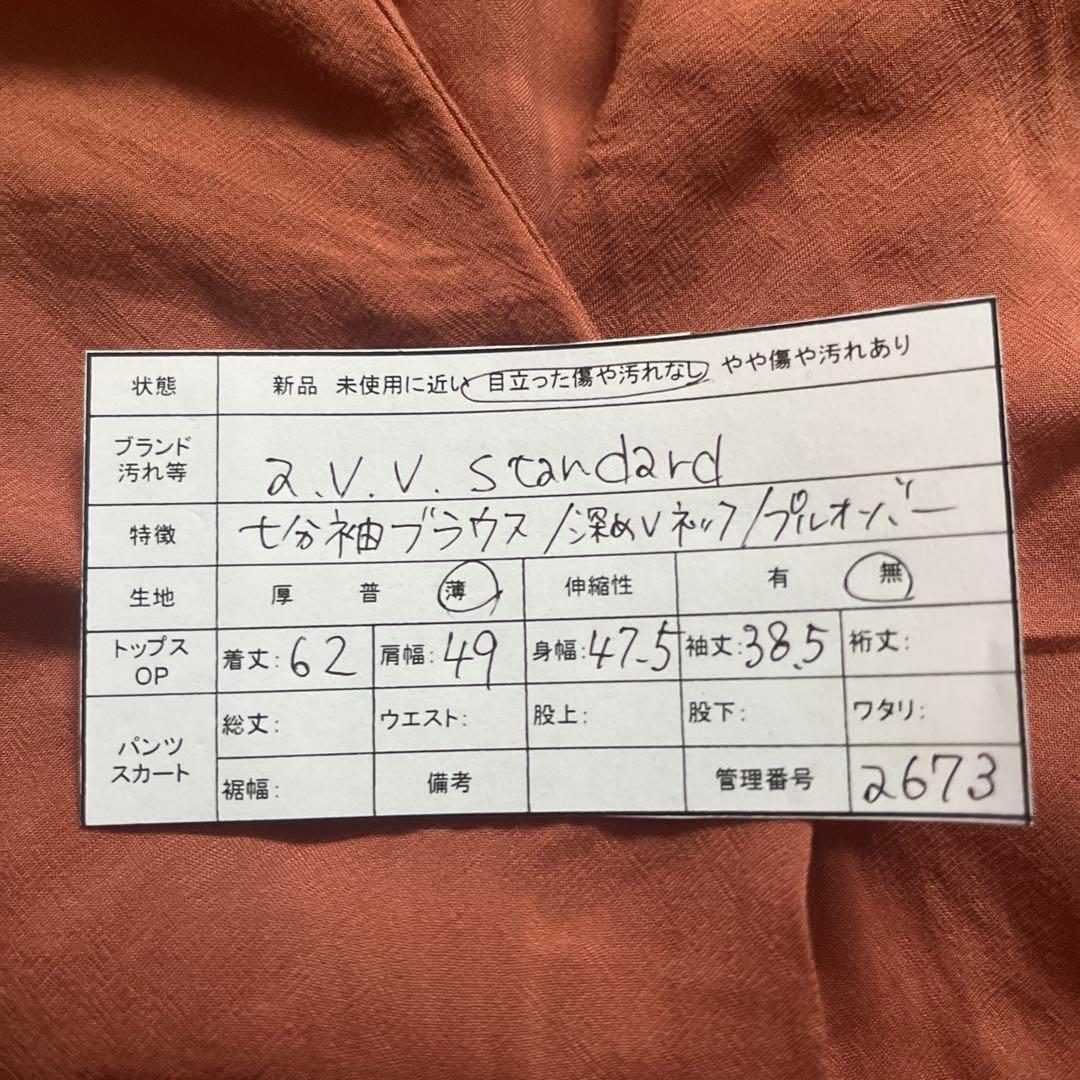 状態 新品 未使用に近い 目立った傷や汚れなし やや傷や汚れあり
ブランド
汚れ等 a.v.v. standard
特徴 七分袖ブラウス/深めVネック/プルオーバー
生地 厚 普 薄 伸縮性 有 無
トップス
OP 着丈:62 肩幅:49 身幅:47.5 袖丈:38.5 裄丈:
パンツ
スカート 総丈: ウエスト: 股上: 股下: ワタリ:
裾幅: 備考 管理番号 2673